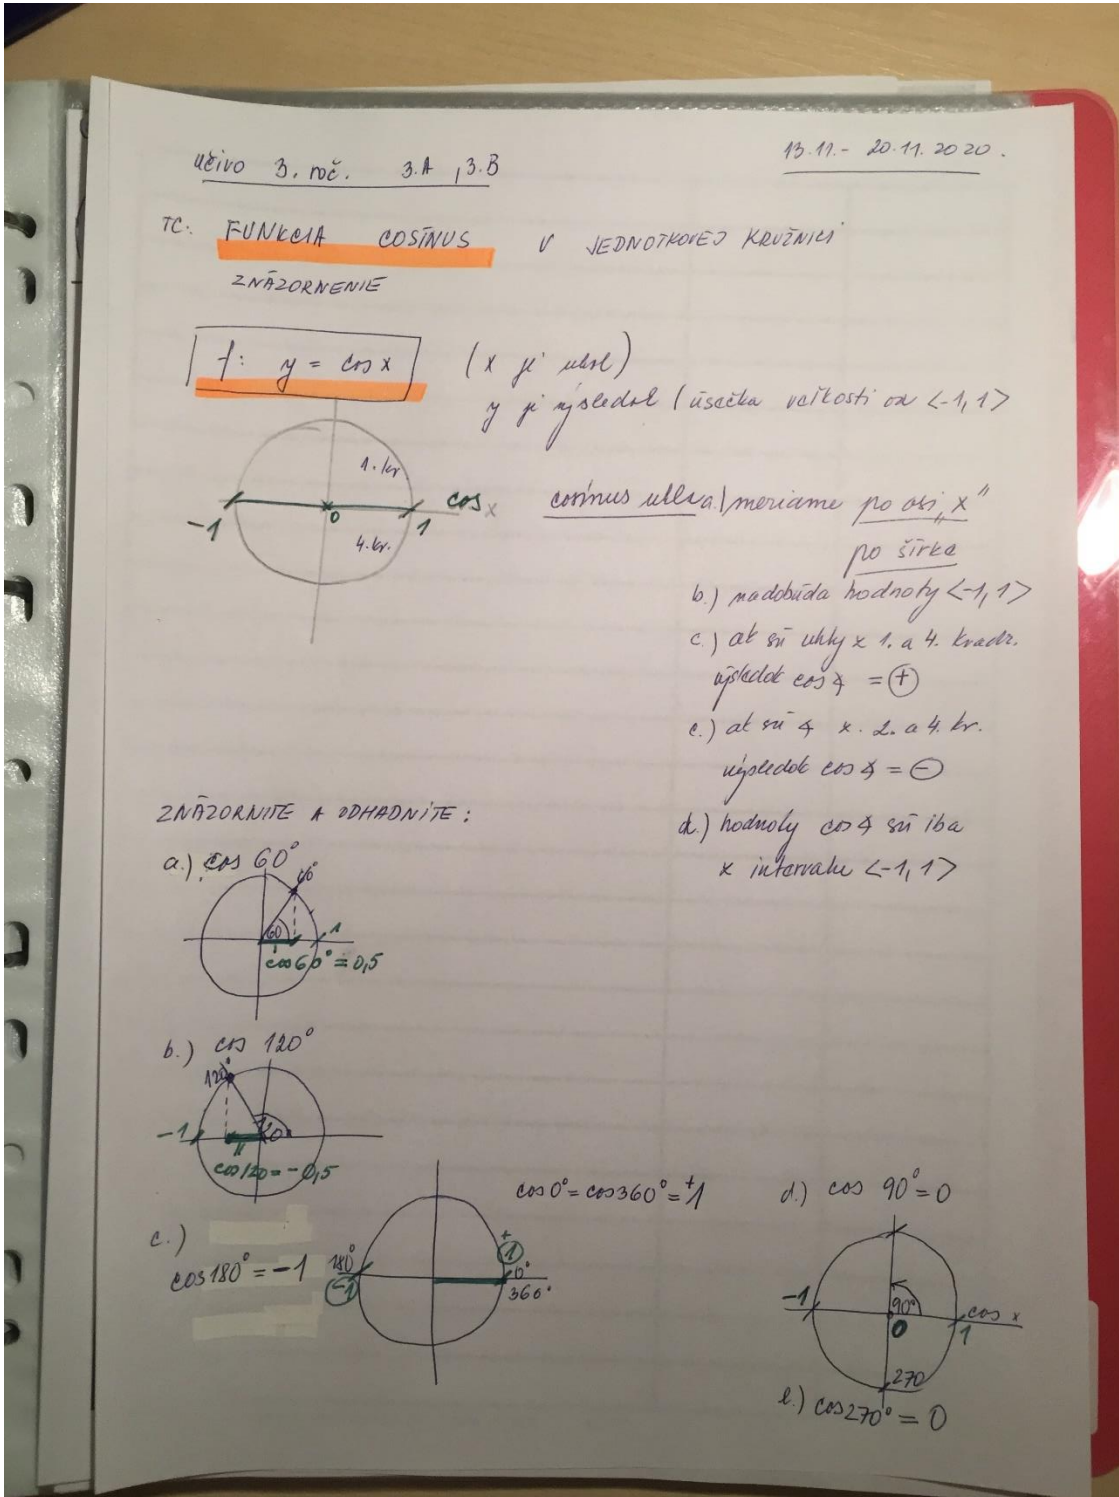 učivo 3. roč. 3.A, 3.B
13.11.- 20.11.2020.
TC: FUNKCIA COSÍNUS V JEDNOTKOVEJ KRUŽNICI
ZNÁZORNENIE
f: y = cos x
(x je uhol)
y je výsledok (úsečka veľkosti od <-1,1>
1. kr
cos x
-1
0
1
4. kr.
cosínus uhla a.) meriame po osi "x"
po šírke
b.) nadobúda hodnoty <-1,1>
c.) ak sú uhly x 1. a 4. kvadr.
výsledok cos ∢ = +
c.) ak sú ∢ x. 2. a 4. kr.
výsledok cos ∢ = -
d.) hodnoty cos ∢ sú iba
x intervale <-1,1>
ZNÁZORNITE A ODHADNITE:
a.) cos 60°
60°
60
1
cos60° = 0,5
b.) cos 120°
120°
-1
120
cos120 = -0,5
c.)
cos180° = -1
cos0° = cos360° = +1
180°
-1
+
1
0°
360°
d.) cos 90° = 0
-1
90°
0
cos x
1
270
e.) cos270° = 0